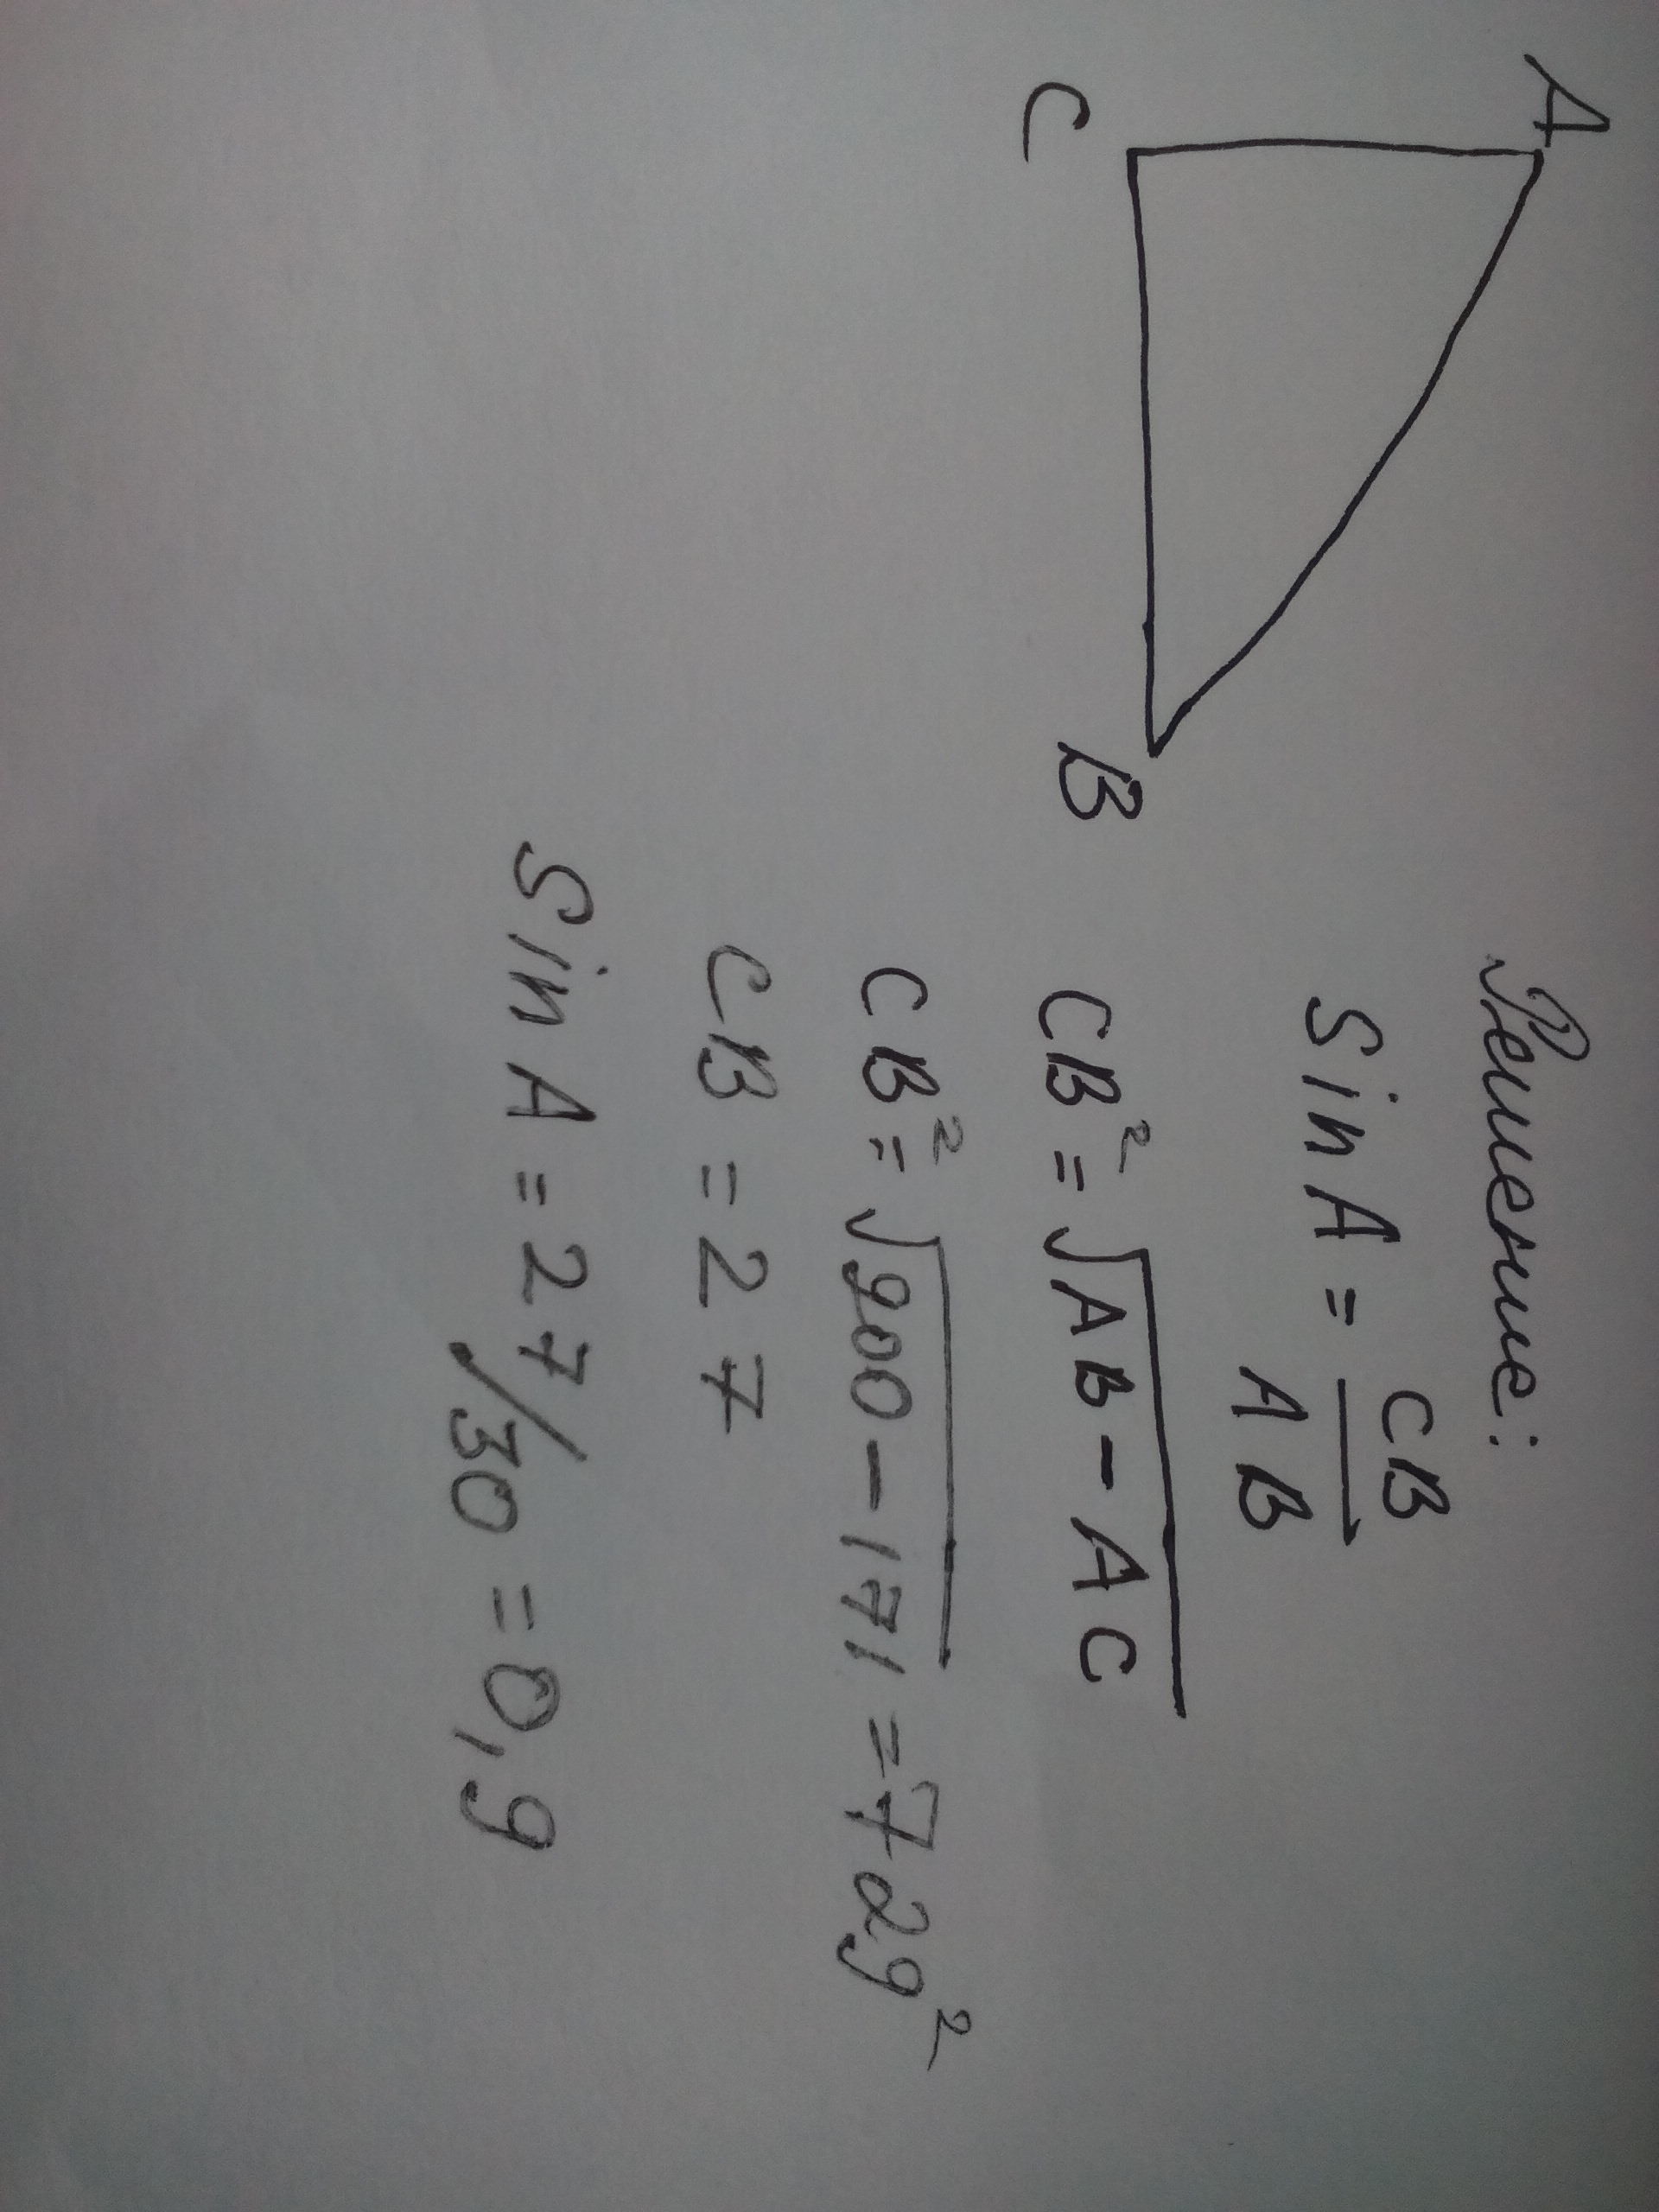 A
C
B
Решение:
Sin A = CB/AB
CB² = √AB - AC
CB² = √900 - 171 = 729²
CB = 27
Sin A = 27/30 = 0,9